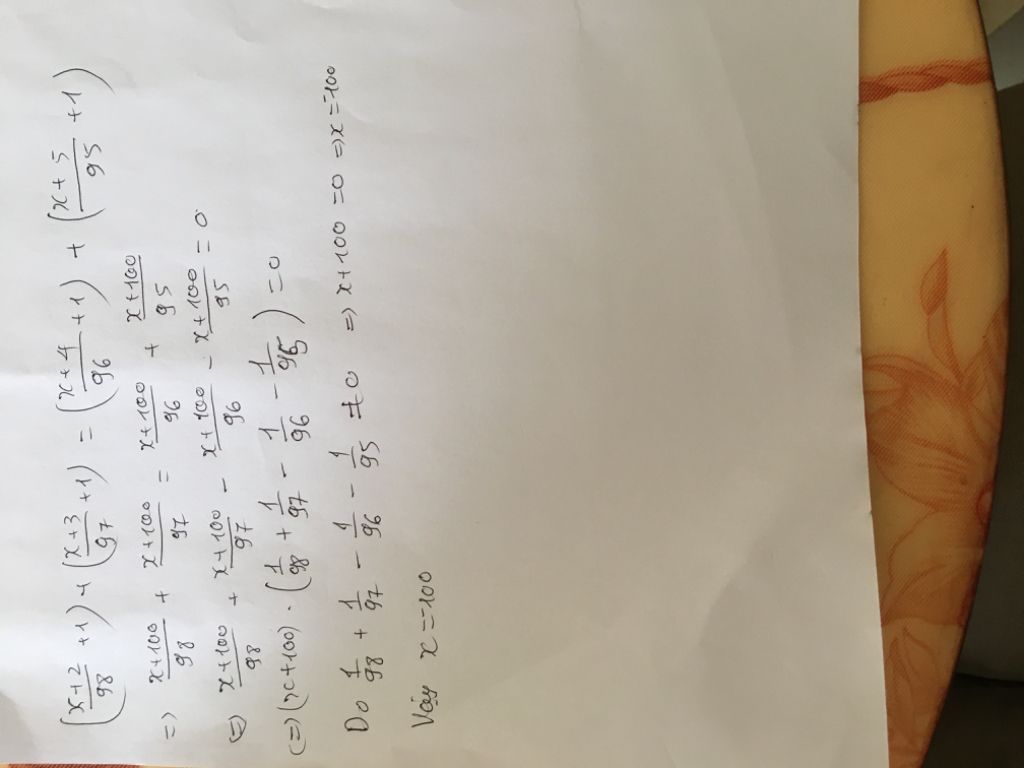 (x+2/98 +1) + (x+3/97 +1) = (x+4/96 +1) + (x+5/95 +1)
=) x+100/98 + x+100/97 = x+100/96 + x+100/95
(=) x+100/98 + x+100/97 - x+100/96 - x+100/95 = 0
(=) (x+100) . (1/98 + 1/97 - 1/96 - 1/95) = 0
Do 1/98 + 1/97 - 1/96 - 1/95 ≠ 0 => x+100 = 0 => x = -100
Vậy x = -100